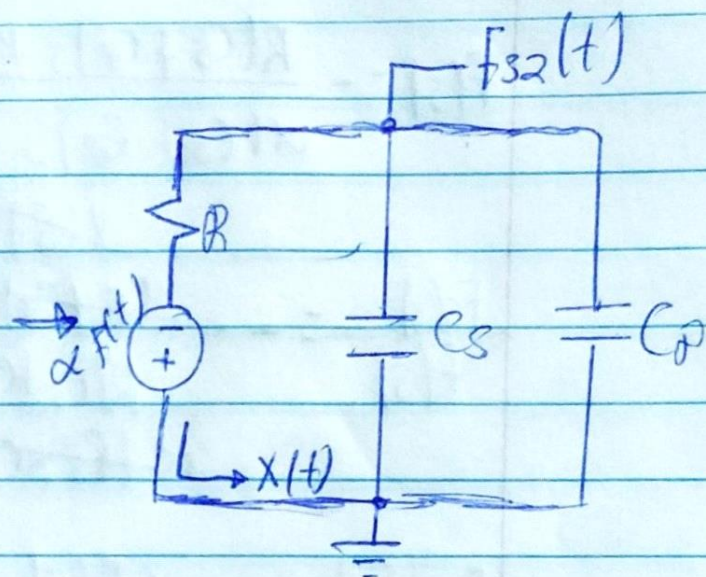 fs2(t)
R
αF(t)
-
+
Cs
Cp
x(t)